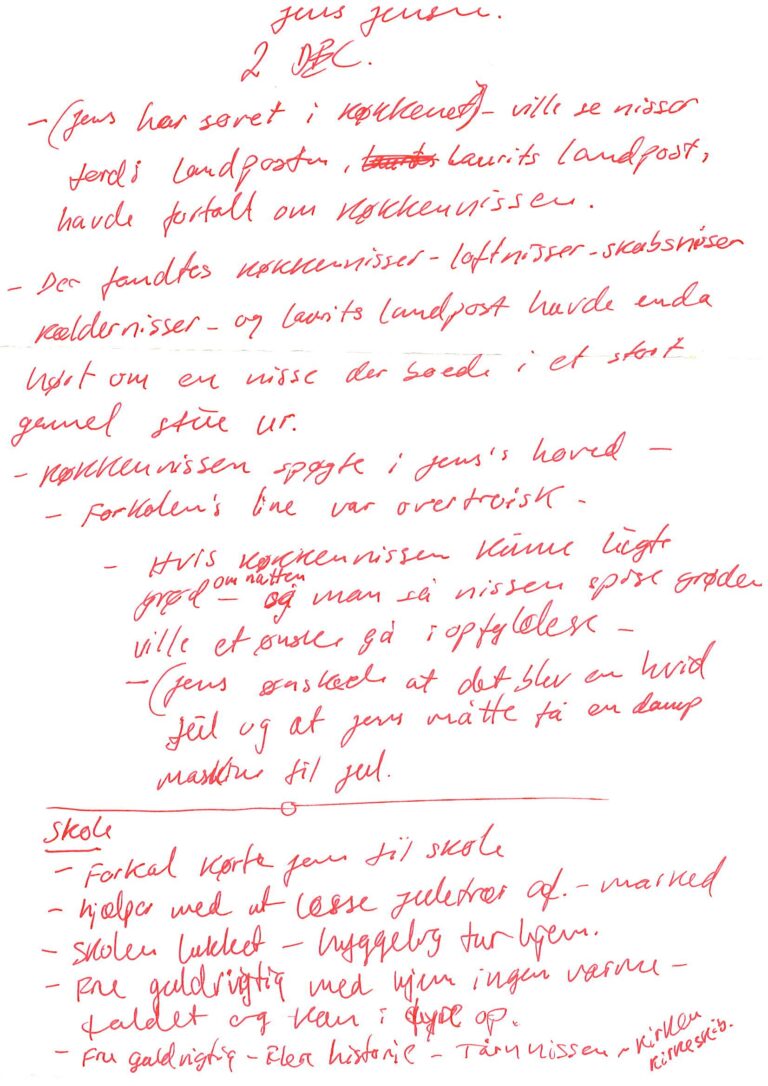 Jens Jensen.
2 DEC.
- (Jens har sovet i køkkenet) - ville se nisser
fordi landposten, Laurits landpost,
havde fortalt om køkkennissen.
- Der fandtes køkkennisser - loftnisser - skabsnisser
kældernisser - og Laurits landpost havde enda
hørt om en nisse der boede i et stort
gammel stue ur.
- køkkennissen spøgte i Jens's hoved -
- Forkalen's line var overtroisk -
- Hvis køkkennissen kunne lugte
grød om natten - og man så nissen spise grøden
ville et ønske gå i opfyldelse -
- (Jens ønskede at det blev en hvid
jul og at Jens måtte få en damp
maskine til jul.
Skole
- Forkal kørte Jens til skole
- hjælper med at læsse juletrær af. - marked
- skolen lukket - hyggelig tur hjem.
- Fru guldrigtig med hjem ingen varme -
faldet og kan i op.
- Fru guldrigtig - historie - Tårnnissen - kirken
kirkeskib.